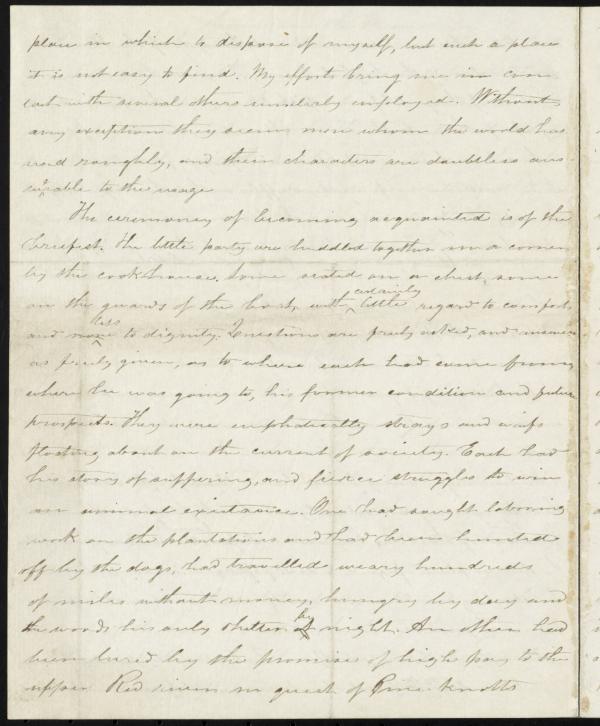 place in which to dispose of myself, but such a place
it is not easy to find. My efforts bring me in con
tact with several others similarly employed. Without
any exception they seem men whom the world has
used roughly, and their characters are doubtless ans
urable to the usage
The ceremoney of becoming acquainted is of the
briefest. The little party are huddled together in a corner
by the cook house. Some seated on a chest, some
on the guards of the boat, with certainly little regard to comfort
and less to dignity. Questions are freely asked, and answers
as freely given, as to where each had come from,
where he was going to, his former condition and future
prospects. They were emphatically strays and waifs
floating about on the current of society. Each had
his story of suffering, and fierce struggles to win
an animal existance. One had sought laboring
work on the plantations and had been hunted
off by the dogs, had travelled weary hundreds
of miles without money, hungry by day and
the woods his only shelter by night. An other had
been lured by the promise of high pay to the
upper Red river in quest of Pine Knotts